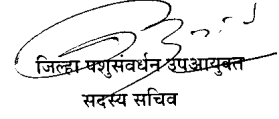 जिल्हा पशुसंवर्धन उपआयुक्त
सदस्य सचिव